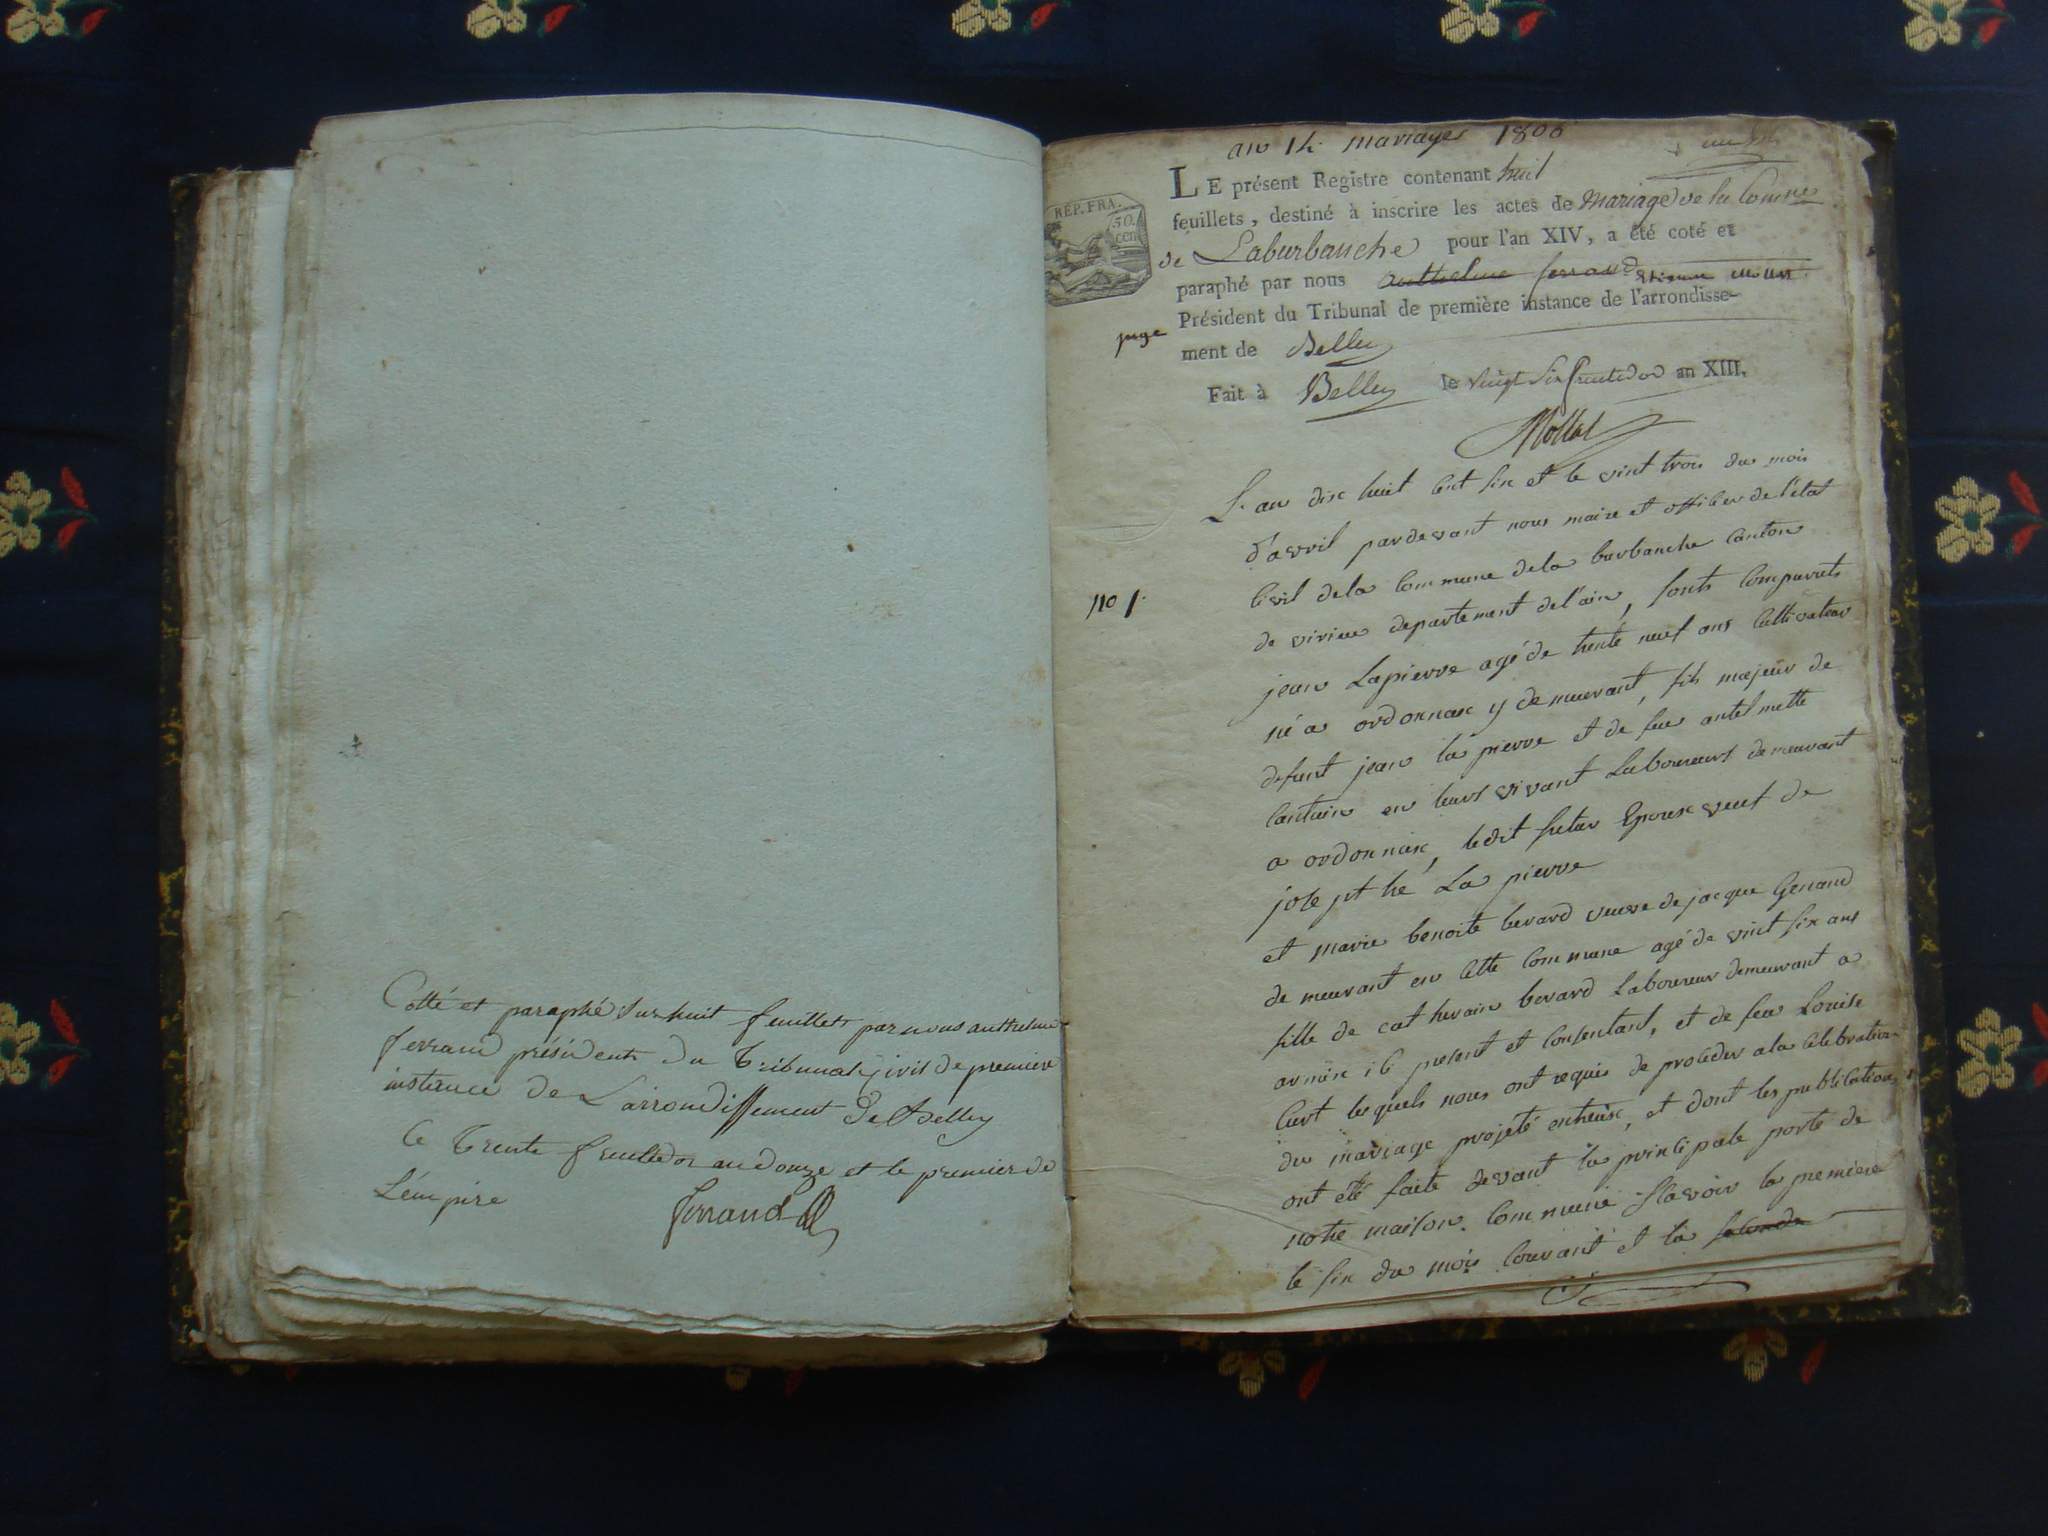 Cotté et paraphé sur huit feuillets par nous anthelme
ferrand président du Tribunal Civil de premiere
instance de L'arrondissement De Belley
Ce Trente fructidor an Douze et le premier de
L'émpire
ferrand
an 14. mariages 1806
REP. FRA.
50.
cen
LE présent Registre contenant huit
feuillets, destiné à inscrire les actes de Mariage de la Comune
de Laburbanche pour l'an XIV, a été coté et
paraphé par nous anthelme ferrand
Président du Tribunal de première instance de l'arrondisse-
juge
ment de Belley
Fait à Belley le vingt six fructidor an XIII.
Mollet
L'an dix huit cent six et le vint trois du mois
d'avril pardevant nous maire et officier de l'état
No 1.
Civil de la Commune de la burbanche Canton
de virieu departement de l'ain, sonts Comparuts
jean Lapierre agé de trente neuf ans Cultivateur
né a ordonnax y demeurant, fils majeur de
defunt jean la pierre et de feue antelmette
Cantain en leurs vivant Laboureurs demeurant
a ordonnax, ledit futur Epoux veuf de
josepthé La pierre
et marie benoite berard veuve de jacque Genand
demeurant en Cette Commune agé de vint six ans
fille de catherain berard Laboureur demeurant a
armix ici present et Consentant, et de feue Louise
Cart lesquels nous ont requis de proceder a la Celebration
du mariage projeté entreux, et dont les publications
ont été faite devant la principale porte de
notre maison Commune Scavoir la premiere
le six du mois Courant et la seconde